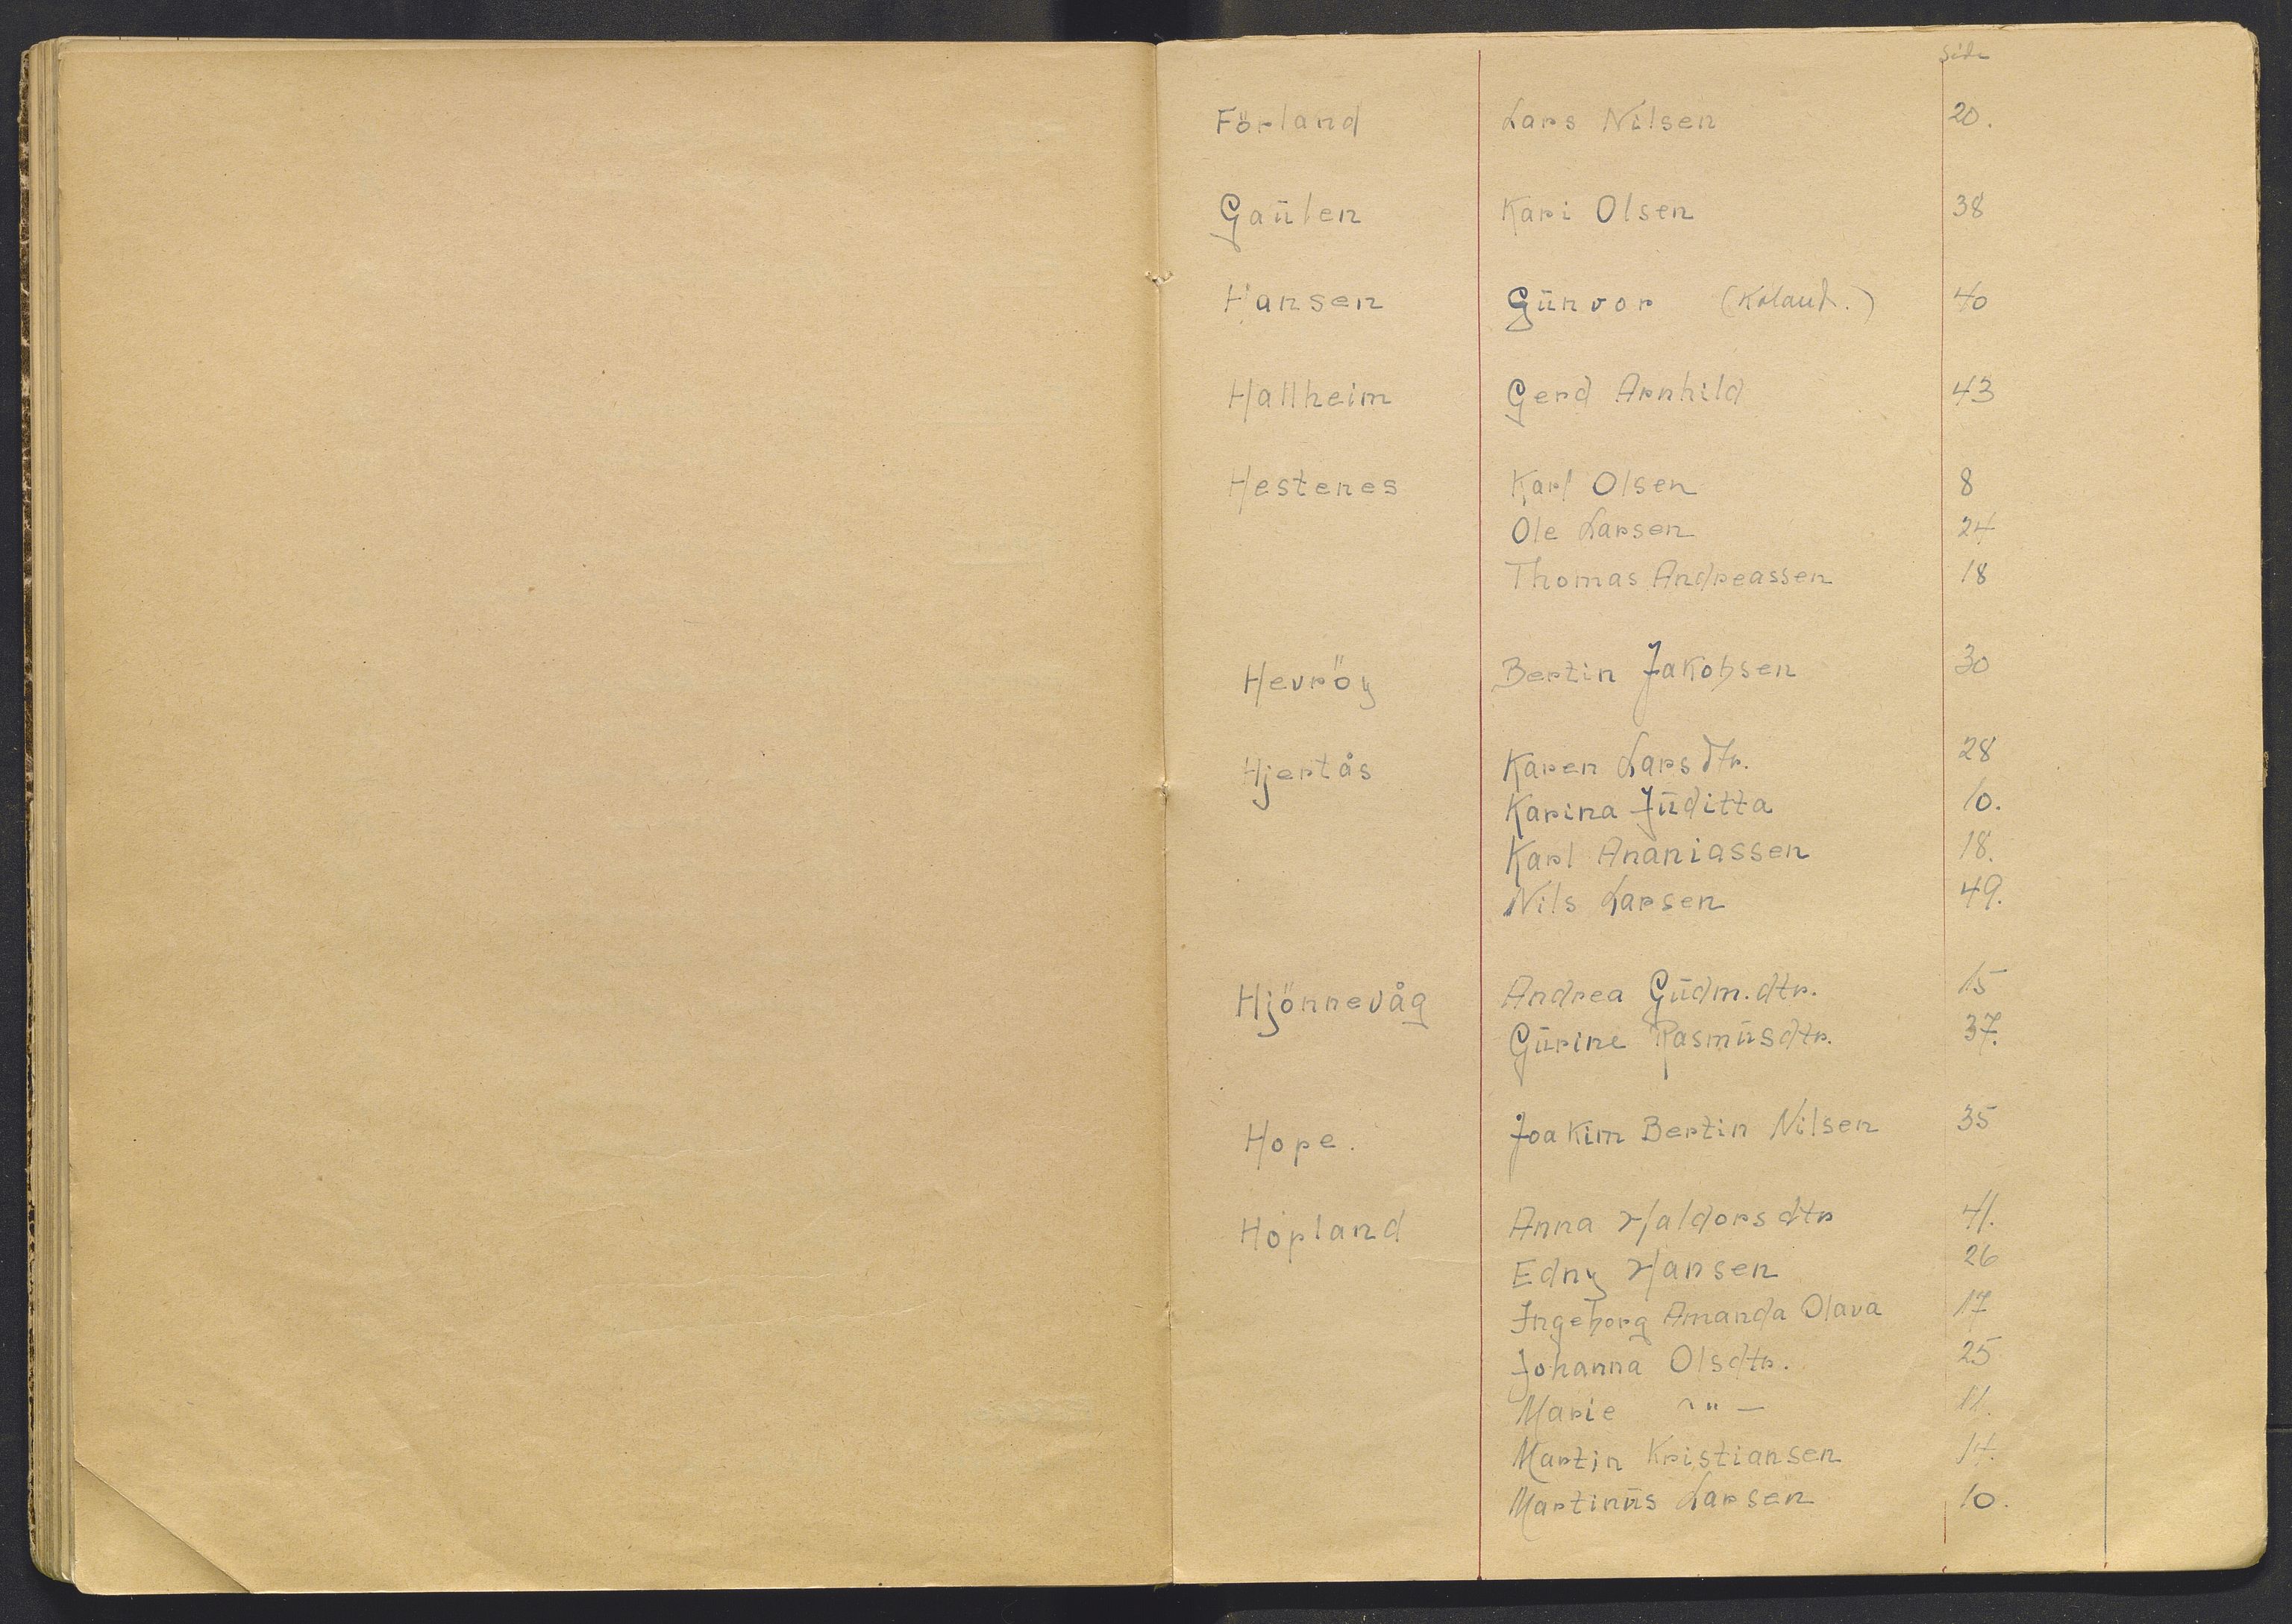 Side
Förland Lars Nilsen 20.
Gaülen Kari Olsen 38
Hansen Günvor 40
Hallheim Gerd Arnhild 43
Hestenes Karl Olsen 8
Ole Larsen 24
Thomas Andreassen 18
Hevröy Bertin Jakobsen 30
Hjertås Karen Larsdtr. 28
Karina Jüditta 10.
Karl Ananiassen 18.
Nils Larsen 49.
Hjönnevåg Andrea Güdm.dtr. 15
Gürine Rasmüsdtr. 37.
Hope. Joakim Bertin Nilsen 35
Hopland Anna Haldorsdtr 41.
Edny Hansen 26
Ingeborg Amanda Olava 17
Johanna Olsdtr. 25
Marie -"- 11.
Martin Kristiansen 14.
Martinüs Larsen 10.